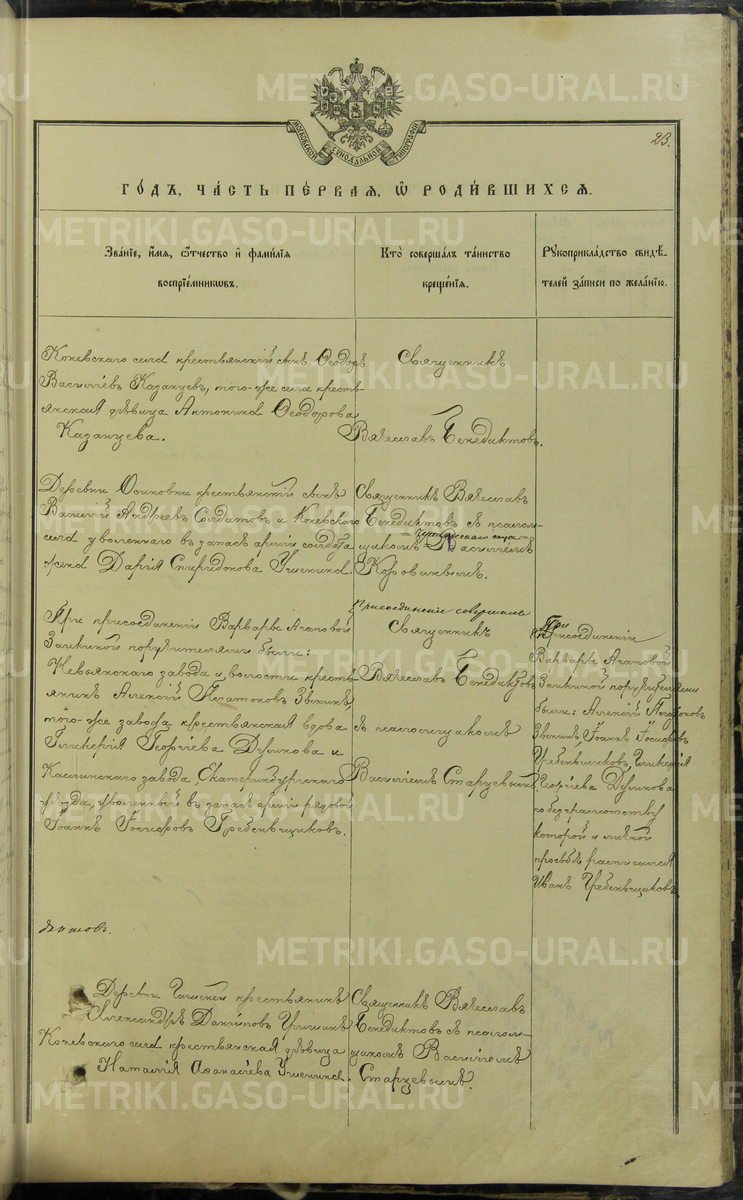 METRIKI.GASO-URAL.RU
МОСКОВСКОЙ СѴНОДАЛЬНОЙ ТИПОГРАФІИ
23.
ГОДЪ, ЧАСТЬ ПЕРВАЯ, Ѡ РОДИВШИХСЯ.
Званіе, имя, отчество и фамилія
воспріемниковъ.
Кто совершалъ таинство
крещенія.
Рукоприкладство свидѣ-
телей записи по желанію.
Коневскаго села крестьянскій сынъ Ѳеодоръ
Василіевъ Казанцевъ, того-же села кресть-
янская дѣвица Антонина Ѳеодорова
Казанцева.
Священникъ
Вячеславъ Бенедиктовъ.
Деревни Осиновки крестьянскій сынъ
Василій Андреевъ Солдатовъ и Коневскаго
села уволеннаго въ запасъ арміи солдата
жена Дарія Спиридонова
Священникъ Вячеславъ
Бенедиктовъ съ псалом-
щикомъ Василіемъ
Коровинымъ.
При присоединеніи Варвары Агаповой
Заикиной поручителями были:
Невьянскаго завода и волости кресть-
янинъ Алексій Платоновъ
того-же завода крестьянская вдова
Гликерія Георгіева и
Каслинскаго завода Екатеринбургскаго
уѣзда, уволенный въ запасъ арміи рядовой
Іоаннъ Іосифовъ Гребенщиковъ.
Присоединеніе совершалъ
Священникъ
Вячеславъ Бенедиктовъ
съ псаломщикомъ
Василіемъ Старцевымъ
При
присоединеніи
Варвары Агаповой
Заикиной поручителями
были: Алексій Платоновъ
Іоаннъ Іосифовъ
Гребенщиковъ, Гликерія
Георгіева
по безграмотству
которой и личной
просьбѣ расписался
Иванъ Гребенщиковъ.
Деревни крестьянинъ
Александръ Даниловъ
Коневскаго села крестьянская дѣвица
Наталія Аѳанасіева
Священникъ Вячеславъ
Бенедиктовъ съ псалом-
щикомъ Василіемъ
Старцевымъ.